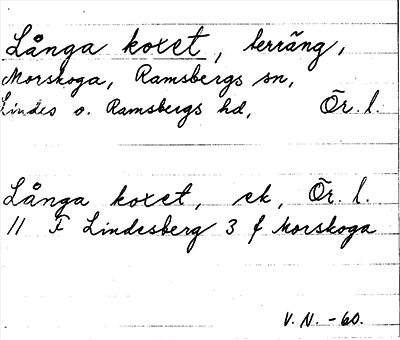 Långa koxet, terräng,
Morskoga, Ramsbergs sn,
Lindes o. Ramsbergs hd, Ör. l.
Långa koxet, ek, Ör. l.
11 F Lindesberg 3 f Morskoga
V. N. -60.